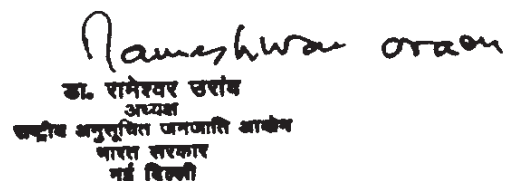 Rameshwar Oraon
डा. रामेश्वर उरांव
अध्यक्ष
राष्ट्रीय अनुसूचित जनजाति आयोग
भारत सरकार
नई दिल्ली